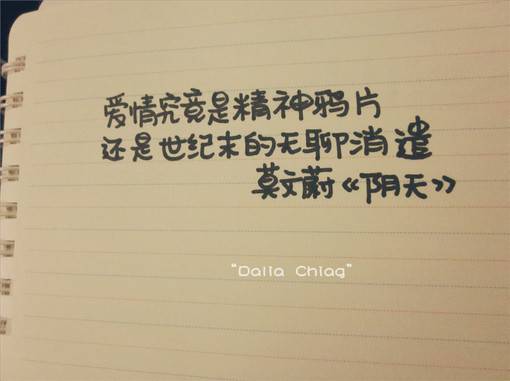 爱情究竟是精神鸦片
还是世纪末的无聊消遣
莫文蔚《阴天》
"Dalla Chlag"